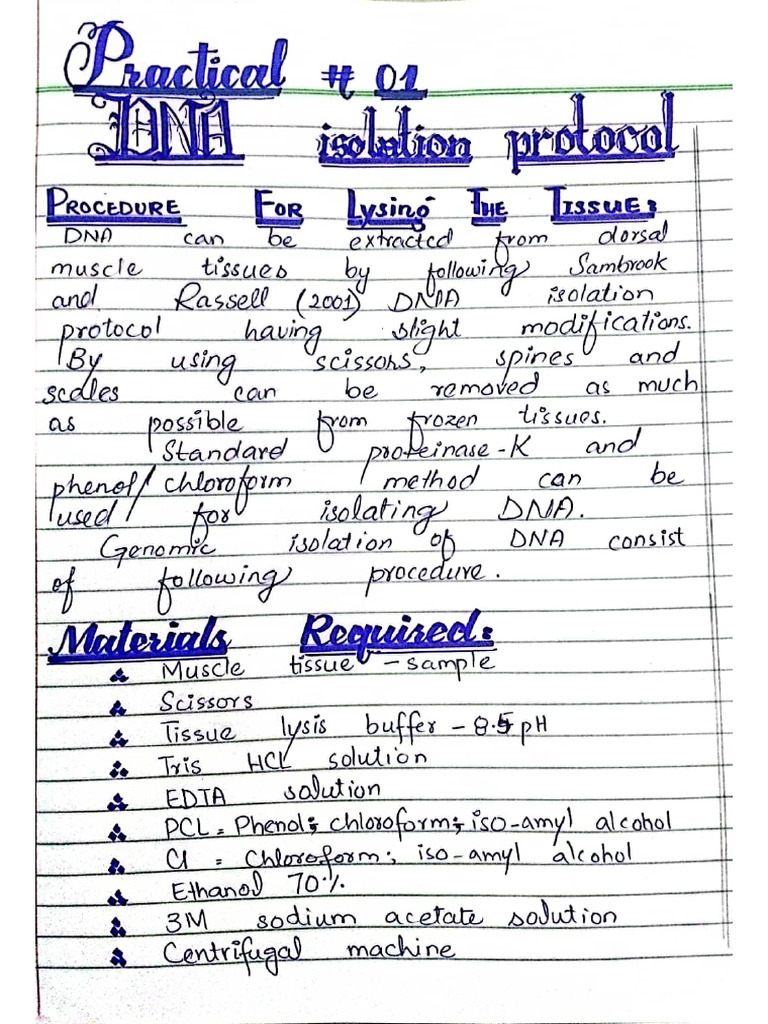 Practical # 01
DNA isolation protocol
PROCEDURE FOR LYSING THE TISSUE:
DNA can be extracted from dorsal
muscle tissues by following Sambrook
and Rassell (2001) DNA isolation
protocol having slight modifications.
By using scissors, spines and
scales can be removed as much
as possible from frozen tissues.
Standard proteinase-K and
phenol/chloroform method can be
used for isolating DNA.
Genomic isolation of DNA consist
of following procedure.
Materials Required:
Muscle tissue - sample
Scissors
Tissue lysis buffer - 8.5 pH
Tris HCL solution
EDTA solution
PCL = Phenol; chloroform; iso-amyl alcohol
CI = Chloroform; iso-amyl alcohol
Ethanol 70%
3M sodium acetate solution
Centrifugal machine